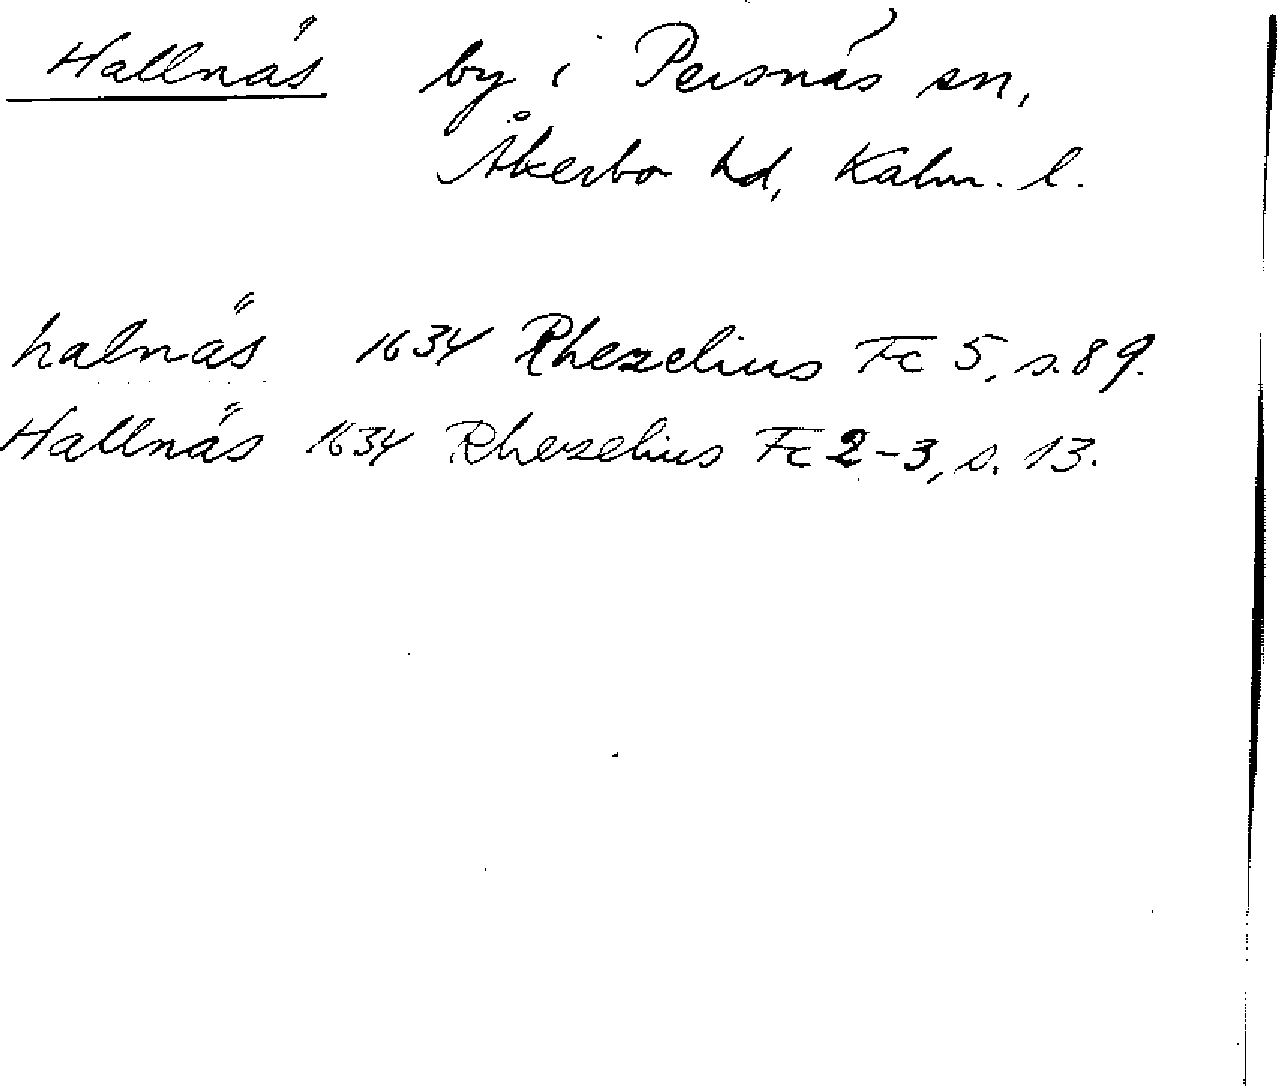 Hallnäs by i Persnäs sn,
Åkerbo hd, Kalm. l.
halnäs 1634 Rhezelius Fc 5, s. 89.
Hallnäs 1634 Rhezelius Fc 2-3, s. 13.